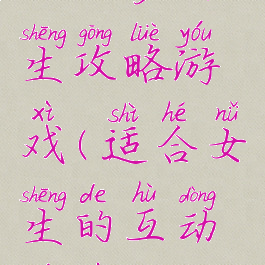 shēng gōng lüè yóu
生攻略游
xì shì hé nǚ
戏(适合女
shēng de hù dòng
生的互动